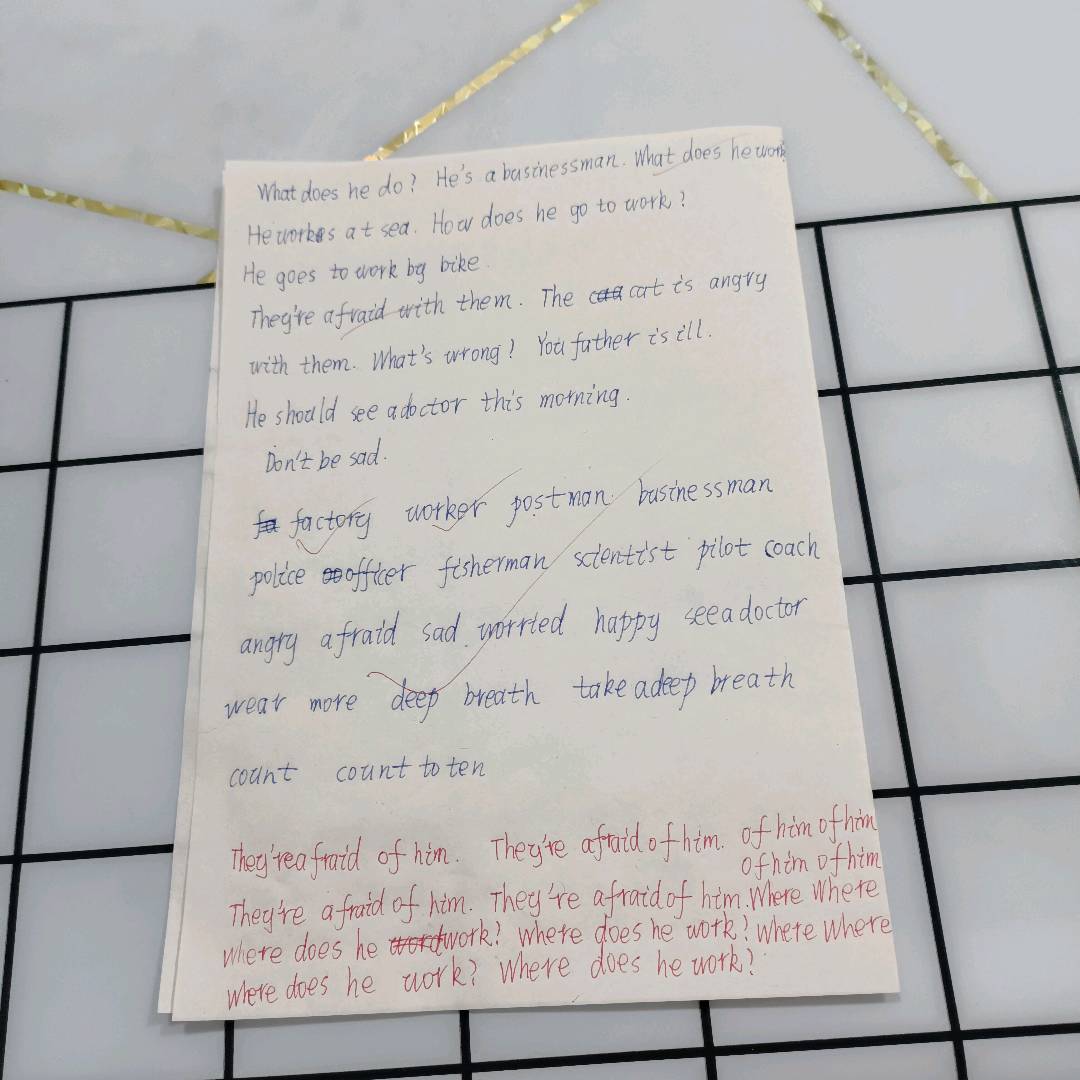 What does he do? He's a businessman. What does he work
He works at sea. How does he go to work?
He goes to work by bike.
They're afraid with them. The cat is angry
with them. What's wrong? You father is ill.
He should see a doctor this morning.
Don't be sad.
factory worker postman businessman
police officer fisherman scientist pilot coach
angry afraid sad worried happy see a doctor
wear more deep breath take a deep breath
count count to ten
They're afraid of him. They're afraid of him. of him of him
of him of him
They're afraid of him. They're afraid of him. Where Where
Where does he work? Where does he work? Where Where
Where does he work? Where does he work?